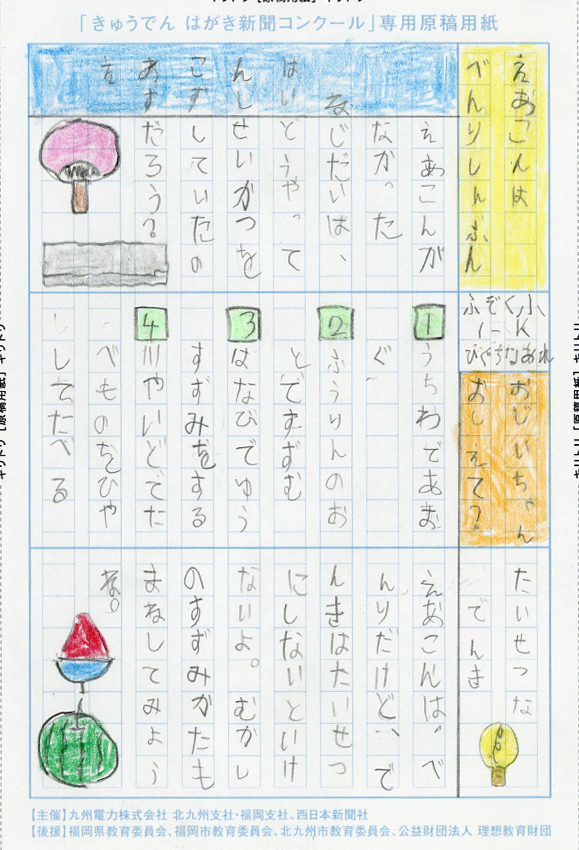 「きゅうでん はがき新聞コンクール」専用原稿用紙
えあこんは
べんりしんぶん
ふぞく小
1-K
えあこんは
すずしいな
えあこんが
なかった
じだいは、
どうやって
せいかつを
していたの
だろう?
おじいちゃん
おしえて?
1 うちわであお
ぐ
2 ふうりんのお
とですずむ
3 はなびでゆう
すずみをする
4 川やいどでた
べものをひや
してたべる
たいせつな
でんき
えあこんは、べ
んりだけど、で
んきはたいせつ
にしないといけ
ないよ。むかし
のすずみかたも
まねしてみよう
ね。
【主催】九州電力株式会社 北九州支社・福岡支社、西日本新聞社
【後援】福岡県教育委員会、福岡市教育委員会、北九州市教育委員会、公益財団法人 理想教育財団